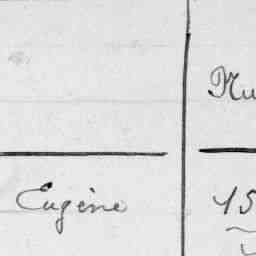 Eugène
15